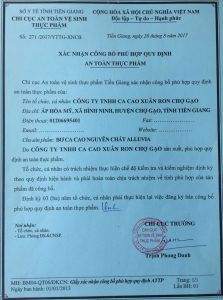 SỞ Y TẾ TỈNH TIỀN GIANG
CHI CỤC AN TOÀN VỆ SINH
THỰC PHẨM
CỘNG HÒA XÃ HỘI CHỦ NGHĨA VIỆT NAM
Độc lập - Tự do - Hạnh phúc
Số: 271 /2017/YTTG-XNCB
Tiền Giang, ngày 28 tháng 8 năm 2017
XÁC NHẬN CÔNG BỐ PHÙ HỢP QUY ĐỊNH
AN TOÀN THỰC PHẨM
Chi cục An toàn vệ sinh thực phẩm Tiền Giang xác nhận công bố phù hợp quy định
an toàn thực phẩm của:
Tên tổ chức, cá nhân: CÔNG TY TNHH CA CAO XUÂN RON CHỢ GẠO
Địa chỉ: ẤP HÒA MỸ, XÃ BÌNH NINH, HUYỆN CHỢ GẠO, TỈNH TIỀN GIANG
Điện thoại: 01206695401 Fax:
Email: Website:
Cho sản phẩm: BƠ CA CAO NGUYÊN CHẤT ALLUVIA
Do CÔNG TY TNHH CA CAO XUÂN RON CHỢ GẠO sản xuất, phù hợp quy
định an toàn thực phẩm.
Tổ chức, cá nhân có trách nhiệm thực hiện chế độ kiểm tra và kiểm nghiệm định kỳ
theo quy định hiện hành và phải hoàn toàn chịu trách nhiệm về tính phù hợp của sản
phẩm đã công bố.
Định kỳ 03 (ba) năm tổ chức, cá nhân phải thực hiện lại việc đăng ký bản công bố
phù hợp quy định an toàn thực phẩm.
Nơi nhận:
- Tổ chức, cá nhân.
- Lưu: Phòng ĐK&CNSP.
CHI CỤC TRƯỞNG
Trịnh Phong Danh
MH: BM04-QT06/ĐKCN: Giấy xác nhận công bố phù hợp quy định ATTP
Ngày ban hành: 01/01/2015
Trang: 1/1
Lần BH: 01